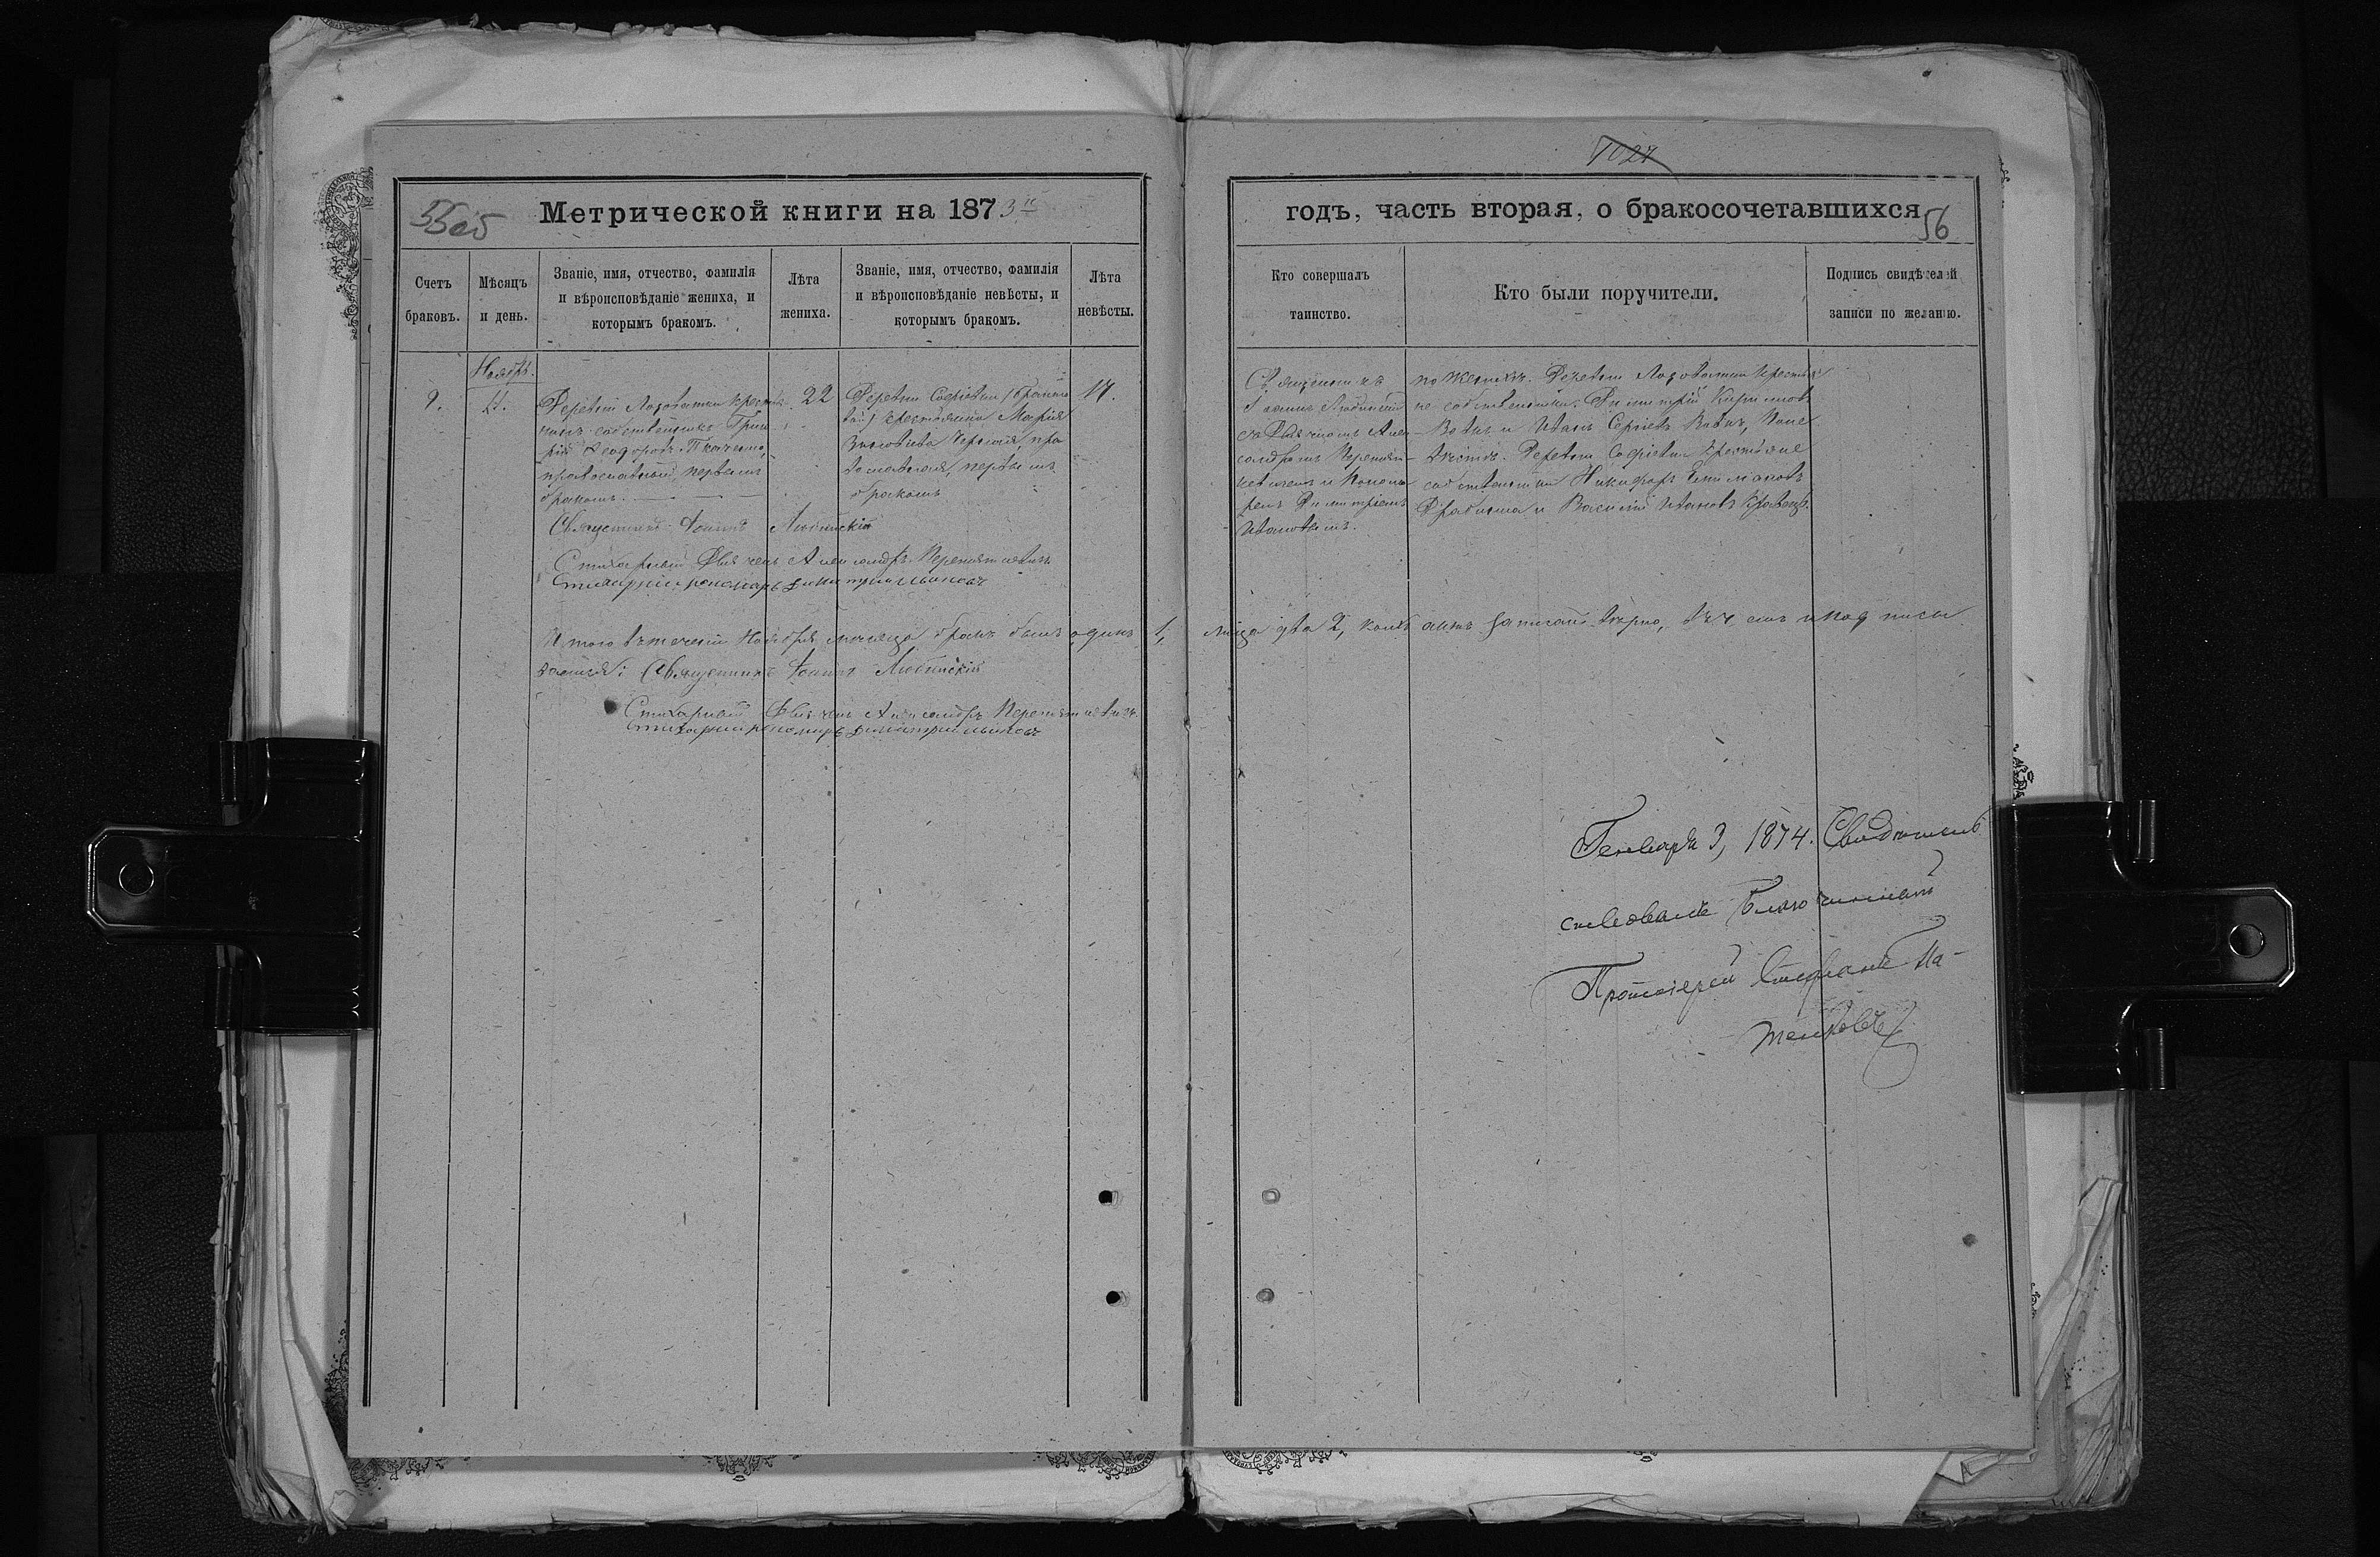 1027
55об
Метрической книги на 1873 й
годъ, часть вторая, о бракосочетавшихся
56
Счетъ браковъ.
Мѣсяцъ и день.
Званіе, имя, отчество, фамилія
и вѣроисповѣданіе жениха, и
которымъ бракомъ.
Лѣта жениха.
Званіе, имя, отчество, фамилія
и вѣроисповѣданіе невѣсты, и
которымъ бракомъ.
Лѣта невѣсты.
Кто совершалъ таинство.
Кто были поручители.
Подпись свидѣтелей
записи по желанію.
Ноябрь.
Деревни Лозоватки крестья-
нинъ собственникъ Григо-
рій Ѳеодоровъ Ткаченко,
православный, первымъ
бракомъ.
22
Деревни Софіевки
крестьянка Марія
пра-
вославная, первымъ
бракомъ
17.
Священникъ
Іоаннъ Любинскій
съ Дьячкомъ Алек-
сандромъ
и Понома-
ремъ Димитріемъ
Ивановымъ.
по женихѣ: Деревни Лозоватки крестья-
не собственники: Димитрій Кириловъ
и Иванъ Сергіевъ По не-
вѣстѣ: Деревни Софіевки Крестьяне
собственники Никифоръ
и Василій Ивановъ Кравецъ.
Священникъ Іоаннъ Любинскій
Стихарный Дьячекъ Александръ
Стихарный пономарь Димитрій Ивановъ
Итого въ теченіи Ноября мѣсяца бракъ былъ одинъ 1, лица два 2,
записанъ вѣрно, въ чемъ и подписы-
ваемся: Священникъ Іоаннъ Любинскій
Стихарный Дьячекъ Александръ
Стихарный пономарь Димитрій Ивановъ
Генваря 3, 1874. Свидѣтель-
ствовалъ Благочинный
Протоіерей Стефанъ